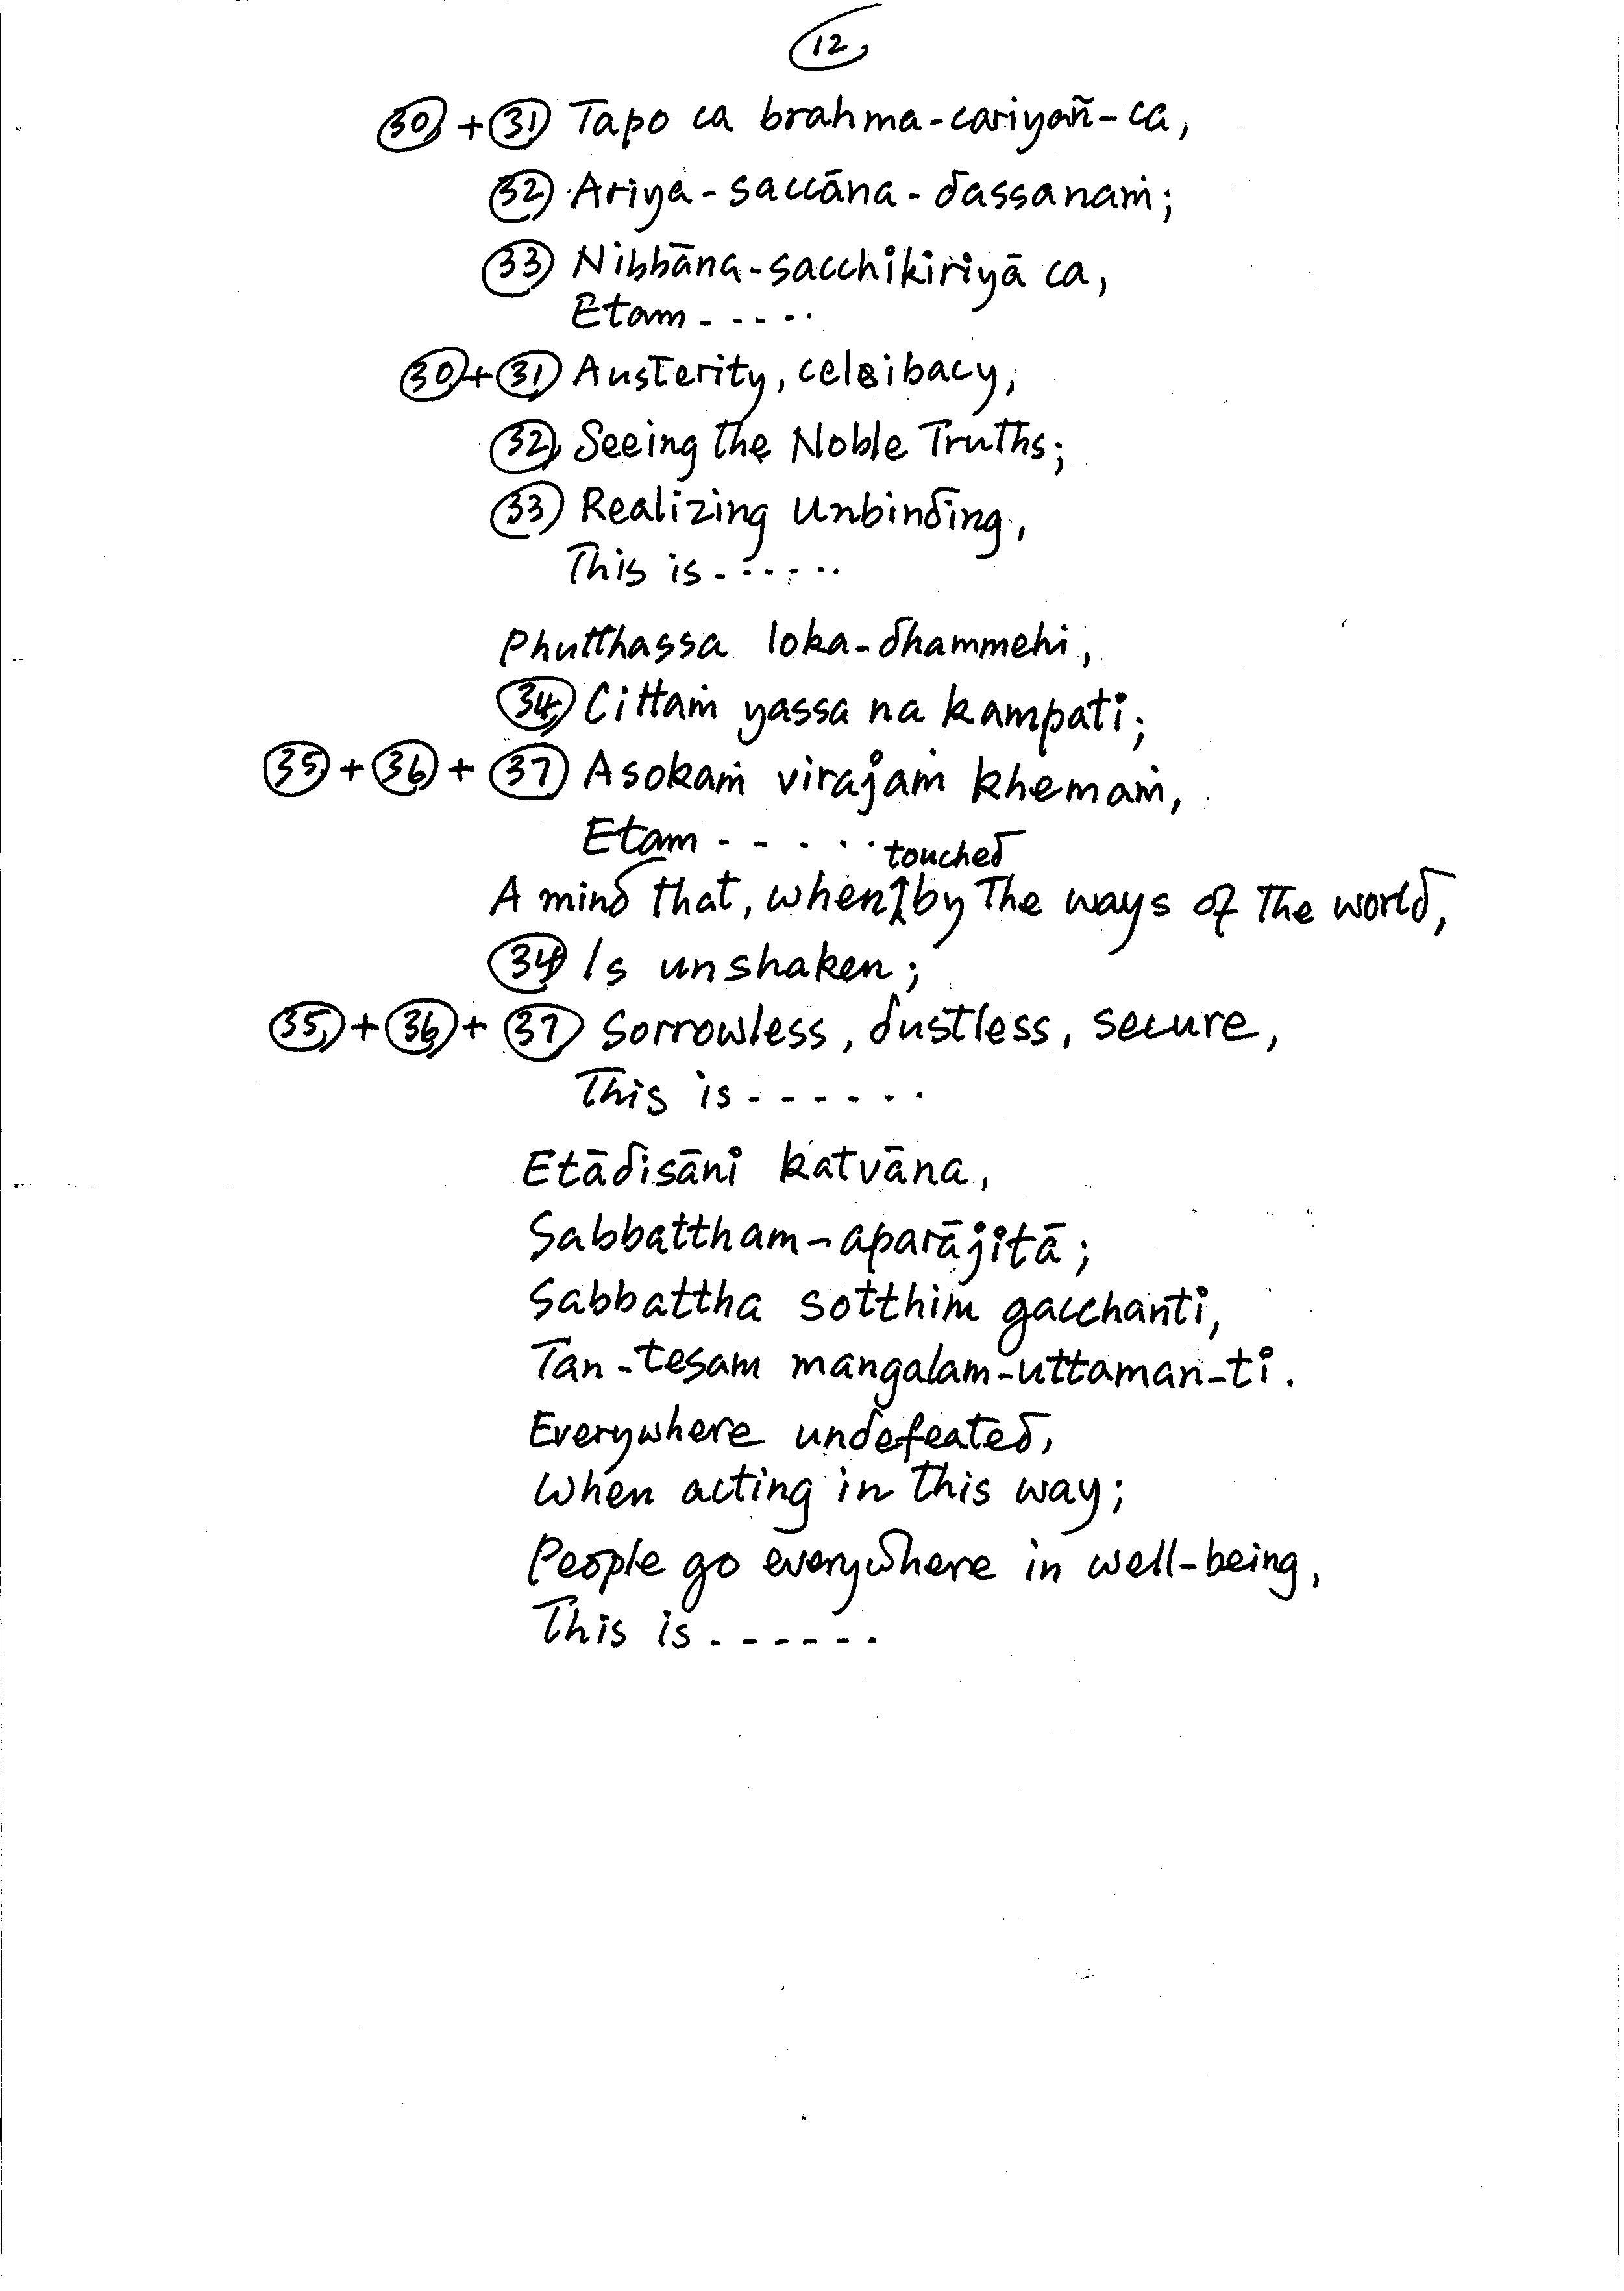 12
30 + 31 Tapo ca brahma-cariyañ-ca,
32 Ariya-saccāna-dassanaṁ;
33 Nibbāna-sacchikiriyā ca,
Etam - - - - -
30 + 31 Austerity, celibacy,
32 Seeing the Noble Truths;
33 Realizing Unbinding,
This is - - - - - -
Phutthassa loka-dhammehi,
34 Cittaṁ yassa na kampati;
35 + 36 + 37 Asokaṁ virajaṁ khemaṁ,
Etam - - - - -
A mind that, when touched by the ways of the world,
34 Is unshaken;
35 + 36 + 37 Sorrowless, dustless, secure,
This is - - - - - -
Etādisāni katvāna,
Sabbattham-aparājitā;
Sabbattha sotthim gacchanti,
Tan-tesam mangalam-uttaman-ti.
Everywhere undefeated,
When acting in this way;
People go everywhere in well-being,
This is - - - - - -